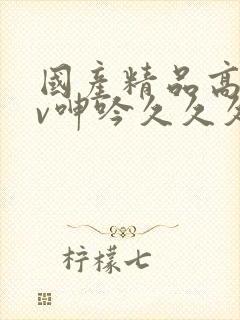 國產精品高
v呻吟久久久
柠檬七